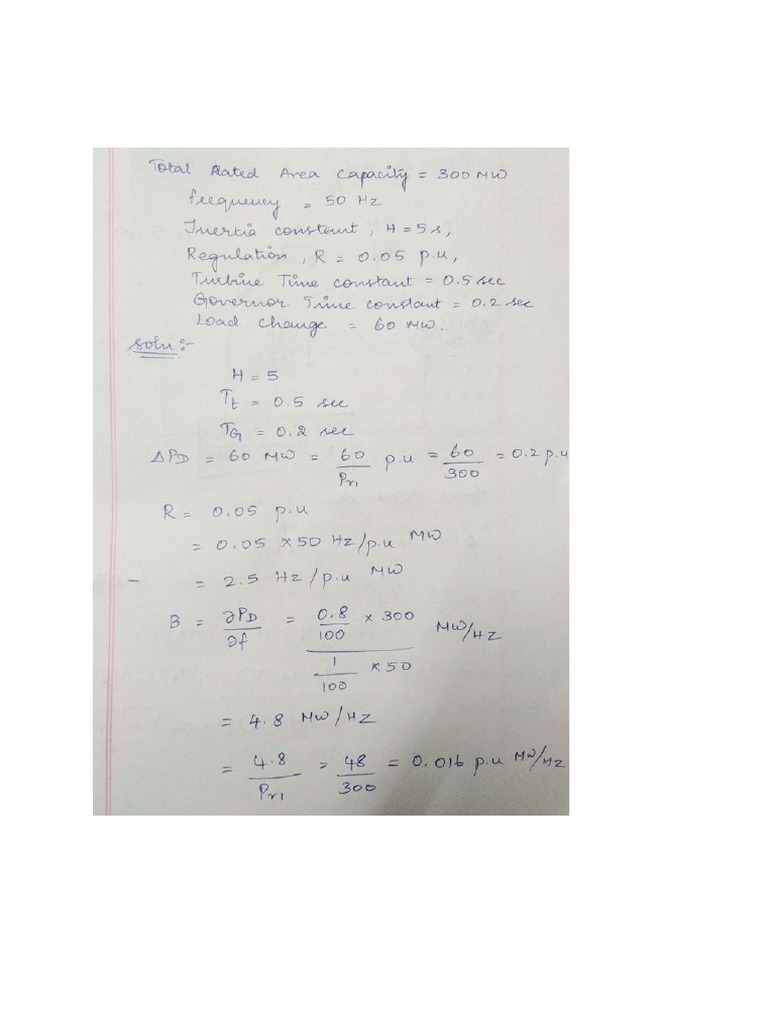 Total Rated Area Capacity = 300 MW
frequency = 50 Hz
Inertia constant, H = 5 s,
Regulation, R = 0.05 p.u,
Turbine Time constant = 0.5 sec
Governor Time constant = 0.2 sec
Load change = 60 MW.
Soln :-
H = 5
Tt = 0.5 sec
TG = 0.2 sec
ΔPD = 60 MW = 60/Pr1 p.u = 60/300 = 0.2 p.u
R = 0.05 p.u
= 0.05 × 50 Hz/p.u MW
= 2.5 Hz/p.u MW
B = ∂PD/∂f = (0.8/100 × 300)/(1/100 × 50) MW/HZ
= 4.8 MW/HZ
= 4.8/Pr1 = 48/300 = 0.016 p.u MW/HZ